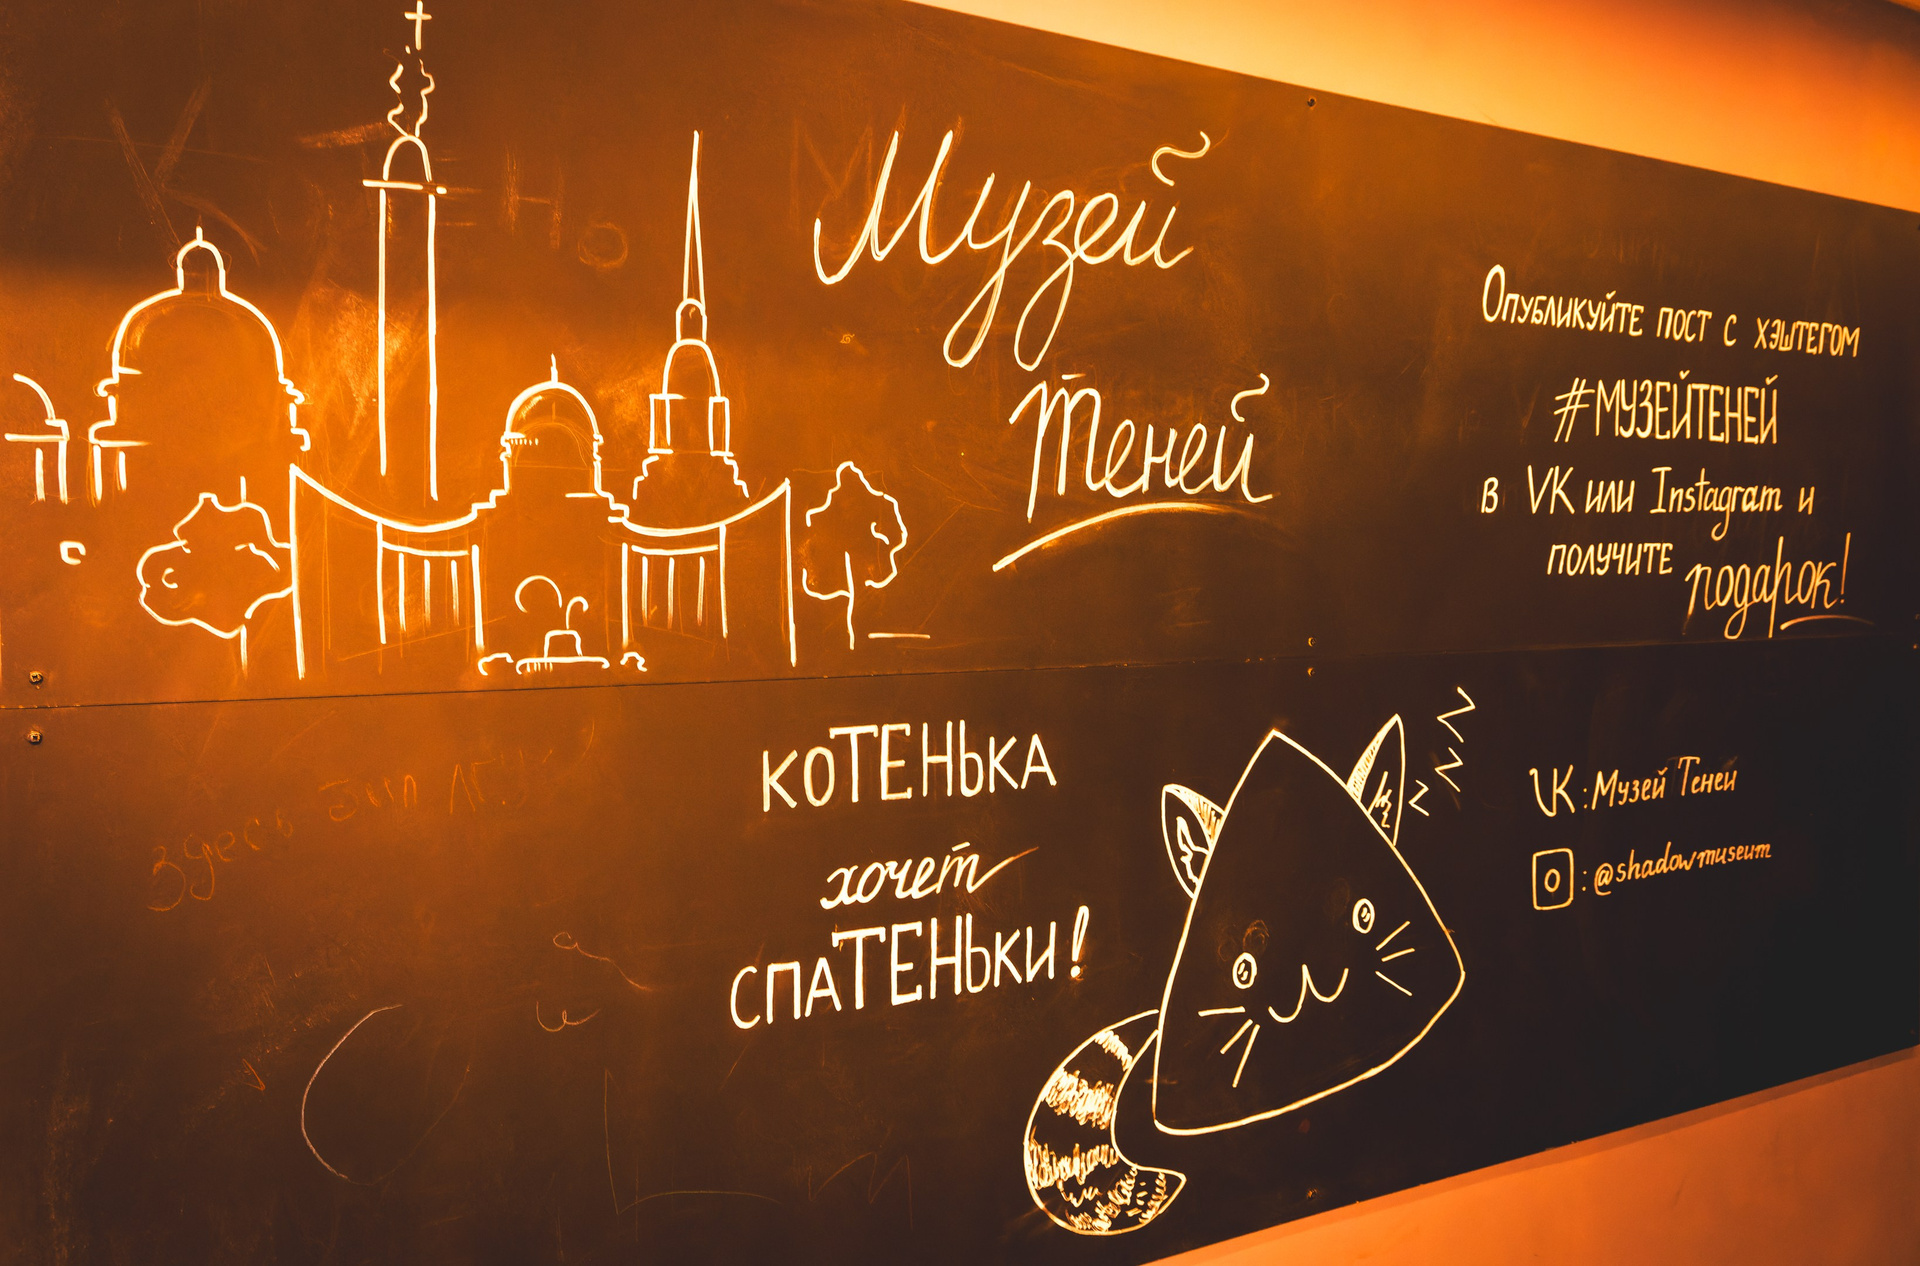 Музей
Теней
Опубликуйте пост с хэштегом
#МУЗЕЙТЕНЕЙ
в VK или Instagram и
получите подарок!
КОТЕНЬКА
хочет
СПАТЕНЬКИ!
Z
Z
Z
VK: Музей Теней
: @shadowmuseum
Здесь был